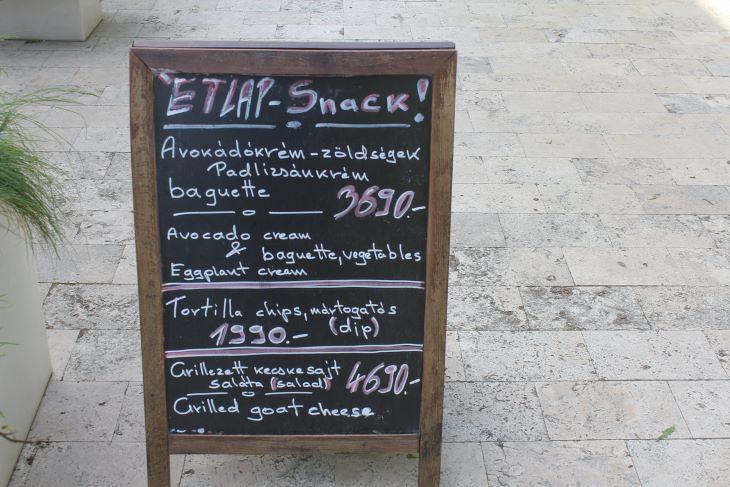 ÉTLAP - Snack!
Avokádókrém - zöldségek
Padlizsánkrém
baguette 3690.-
Avocado cream
& baguette, vegetables
Eggplant cream
Tortilla chips, mártogatós
1990.- (dip)
Grillezett kecskesajt
saláta (salad) 4690.-
Grilled goat cheese